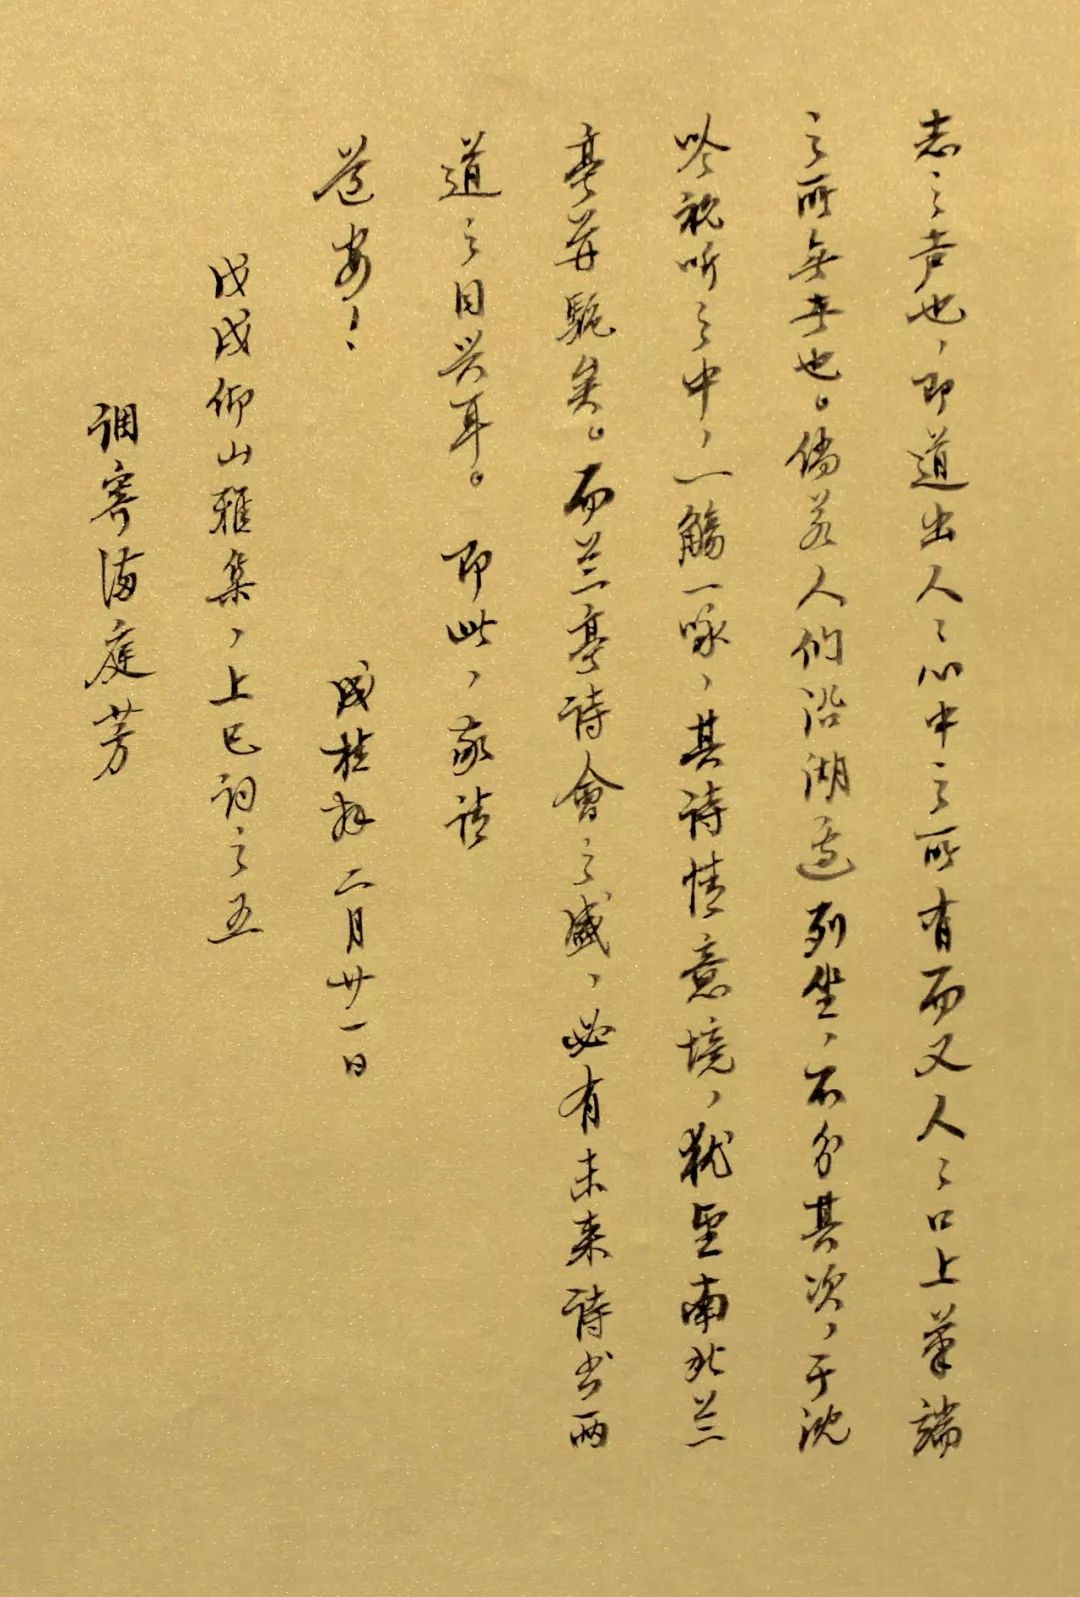 志之声也，即道出人人心中之所有而又人人口上笔端
之所无者也。倘若人们沿湖边列坐，不分其次，于沈
吟视听之中，一觞一咏，其诗情意境，犹望南北兰
亭并驰矣。而兰亭诗會之盛，必有未来诗书两
道之日兴耳。即此，敬请
道安！
成桂拜 二月廿一日
戊戌仰山雅集，上巳词之五
调寄满庭芳